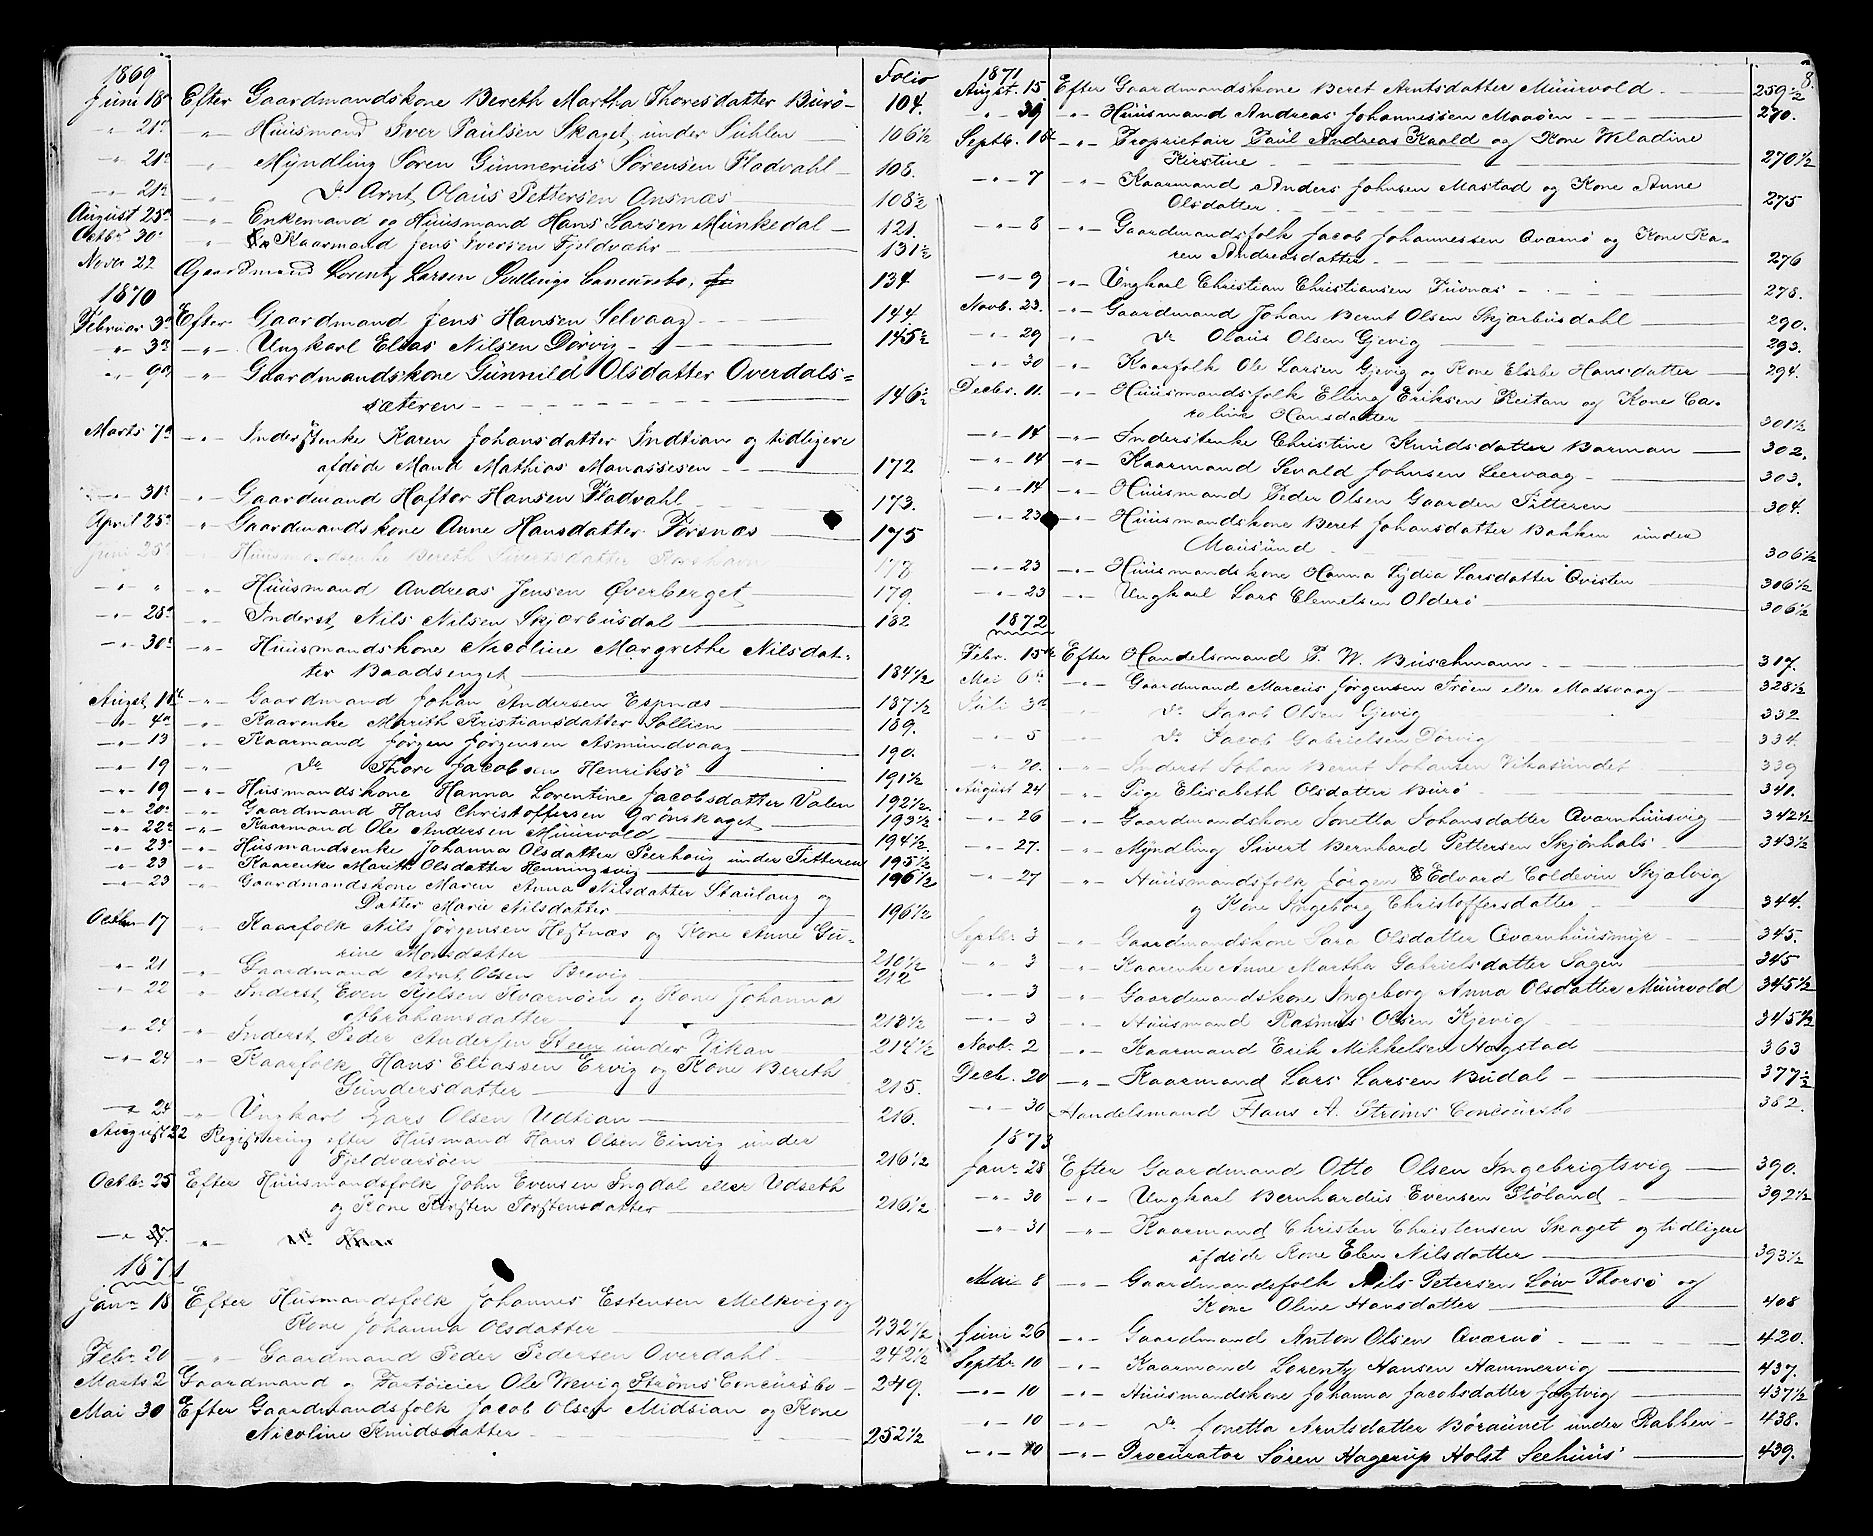 1869 Folio
Juni 18de Efter Gaardmandskone Bereth Martha Thoresdatter Burö 104.
" 21de " Huusmand Iver Paulsen Skaget, under Suhlen 106 1/2
" 21de " Myndling Sören Gunnerius Sörensen Fladvahl 108.
" 21de " Do Arnt Olaus Pettersen Ansnæs 108 1/2
August 25de " Enkemand og Huusmand Hans Larsen Munkedal 121.
Octbr 30 " Kaarmand Jens Iversen Fjeldvahr 131 1/2
Novbr 22 Gaardmand Lorentz Larsen Concursbo, 134
1870
Februar 3de Efter Gaardmand Jens Hansen Selvaag 144
" 3de " Ungkarl Elias Nilsen Dörvig 145 1/2
" 9de " Gaardmandskone Gunnild Olsdatter Overdals=
sæteren 146 1/2
Marts 7de " Inderstenke Karen Johansdatter Indtian og tidligere
afdöde Mand Mathias Manassesen 172
" 31te " Gaardmand Hafter Hansen Fladvahl 173.
April 25de " Gaardmandskone Anne Hansdatter Forsnæs 175
Juni 25de Huusmandsenke Bereth Sivertsdatter 178
" " " Huusmand Andreas Jensen Øverberget 179.
" 28de " Inderst Nils Nilsen Skjærbusdal 182
" 30te " Huusmandskone Nicoline Margrethe Nilsdat-
ter Baadsenget 184 1/2
August " Gaardmand Johan Andersen Espnæs 187 1/2
" 4de " Kaarenke Marith Kristiansdatter Sollien 189.
" 13 " Kaarmand Jörgen Jörgensen Asmundvaag 190.
" 19 " Do Thore Jacobsen Henriksö 191 1/2
" 19 " Husmandskone Hanna Lorentine Jacobsdatter Valen 192 1/2
" 20de " Gaardmand Hans Christoffersen Grönskaget 193 1/2
" 22de " Kaarmand Ole Andersen Muurvold 194 1/2
" 23de " Husmandsenke Johanna Olsdatter Peerhoug under Titteren 195 1/2
" 23 " Kaarenke Marith Olsdatter Henningsvig 196 1/2
" 23 " Gaardmandskone Maren Anna Nilsdatter Staulang og
Datter Marie Nilsdatter 196 1/2
Octbr 17 " Kaarfolk Nils Jörgensen Hestnæs og Kone Anne Gu-
rine Monsdatter 210 1/2
" 21 " Gaardmand Arnt Olsen Brevig 212
" 22 " Inderst Even Kjelsen Kværnöen og Kone Johanna
Abrahamsdatter 213 1/2
" 24 " Inderst Peder Andersen Steen under Vikan 214 1/2
" 24 " Kaarfolk Hans Eliassen Ervig og Kone Bereth
Gundersdatter 215.
" 24 " Ungkarl Lars Olsen Udtian 216.
August 22 Registrering efter Husmand Hans Olsen Einvig under
Fjeldværsöen 216 1/2
Octbr 25 Efter Huusmandsfolk John Evensen Ingdal eller Udseth
og Kone Kirsten Torstensdatter 216 1/2
1871
Janr 18 Efter Husmandsfolk Johannes Estensen Melkvig og
Kone Johanna Olsdatter 232 1/2
Febr 20 " Gaardmand Peder Pedersen Overdahl 242 1/2
Marts 2 Gaardmand og Fartöieier Ole Vevig Ströms Concursbo 249.
Mai 30 Efter Gaardmandsfolk Jacob Olsen Midtian og Kone
Nicoline Knudsdatter 252 1/2
8.
1871
Augst. 15 Efter Gaardmandskone Beret Arntsdatter Muurvold 259 1/2
" 30 " Huusmand Andreas Johannessen Maaöen 270.
Septb. 1ste " Proprietair Paul Andreas Kaald og Kone Weladine
Kirstine 270 1/2
" 7 " Kaarmand Anders Johnsen Mastad og Kone Anne
Olsdatter 275
" 8 " Gaardmandsfolk Jacob Johannessen Qværnö og Kone Ka-
ren Andreasdatter 276
" 9 " Ungkarl Christian Christiansen Tuvnæs 278.
Novb. 23. " Gaardmand Johan Bernt Olsen Skjærbusdahl 290.
" 29 " Do Olaus Olsen Gjevig 293.
" 30 " Kaarfolk Ole Larsen Gjevig og Kone Elsebe Hansdatter 294.
Decbr. 11. " Huusmandsfolk Elling Eriksen Reitan og Kone Ca-
roline Hansdatter 301 1/2
" 14 " Inderstenke Christine Knudsdatter Barman 302.
" 14 " Kaarmand Sevald Johnsen Leervaag 303.
" 14 " Huusmand Peder Olsen Gaarden Titteren 304.
" 23 " Huusmandskone Beret Johansdatter Bakken under
Mausund 306 1/2
" 23 " Huusmandskone Hanna Lydia Larsdatter Qvisten 306 1/2
" 23 " Ungkarl Lars Clemetsen Olderö 306 1/2
1872
Febr. 15de Efter Handelsmand P. W. Buschmann 317.
Mai 6te " Gaardmand Marcus Jörgensen Tröen eller Massvaag 328 1/2
Juli 3de " Do Jacob Olsen Gjevig 332
" 5 " Do Jacob Gabrielsen Dörvig 334.
" 20. " Inderst Johan Bernt Johansen Vikasundet 339
August 24 " Pige Elisabeth Olsdatter Burö 341.
" 26 " Gaardmandskone Jonetta Johansdatter Qvarnhuusvig 342 1/2
" 27. " Myndling Sivert Bernhard Pettersen Skjönhals 343 1/2
" 27 " Huusmandsfolk Jörgen Edvard Coldevin Skjalvig
og Kone Ingeborg Christoffersdatter 344.
Septbr. 3 " Gaardmandskone Sara Olsdatter Qvarnhuusmyr 345.
" 3 " Kaarenke Anne Martha Gabrielsdatter Sagen 345
" 3 " Gaardmandskone Ingeborg Anna Olsdatter Muurvold 345 1/2
" 3 " Huusmand Rasmus Olsen Kjevig 345 1/2
Novb. 2 " Kaarmand Erik Mikkelsen Hogstad 363
Decb. 20 " Kaarmand Lars Larsen Budal 377 1/2
" 30 Handelsmand Hans A. Ströms Concursbo 382.
1873
Janr 28 Efter Gaardmand Otto Olsen Ingebrigtsvig 390.
" 30 " Ungkarl Bernhardus Evensen Stöland 392 1/2
" 31 " Kaarmand Christen Christensen Skaget og tidligere
afdöde Kone Elen Nilsdatter 393 1/2
Mai 8 " Gaardmandsfolk Nils Petersen Löw Thorsö og
Kone Oline Hansdatter 408
Juni 26 " Gaardmand Anton Olsen Qværnö 420.
Septbr. 10 " Kaarmand Lorentz Hansen Hammervig 437.
" 10 " Huusmandskone Johanna Jacobsdatter Jogtvig 437 1/2
" 10 " Do Jonetta Arntsdatter Böraunet under Rabben 438.
" 10 " Procurator Sören Hagerup Holst Seehuus 439.